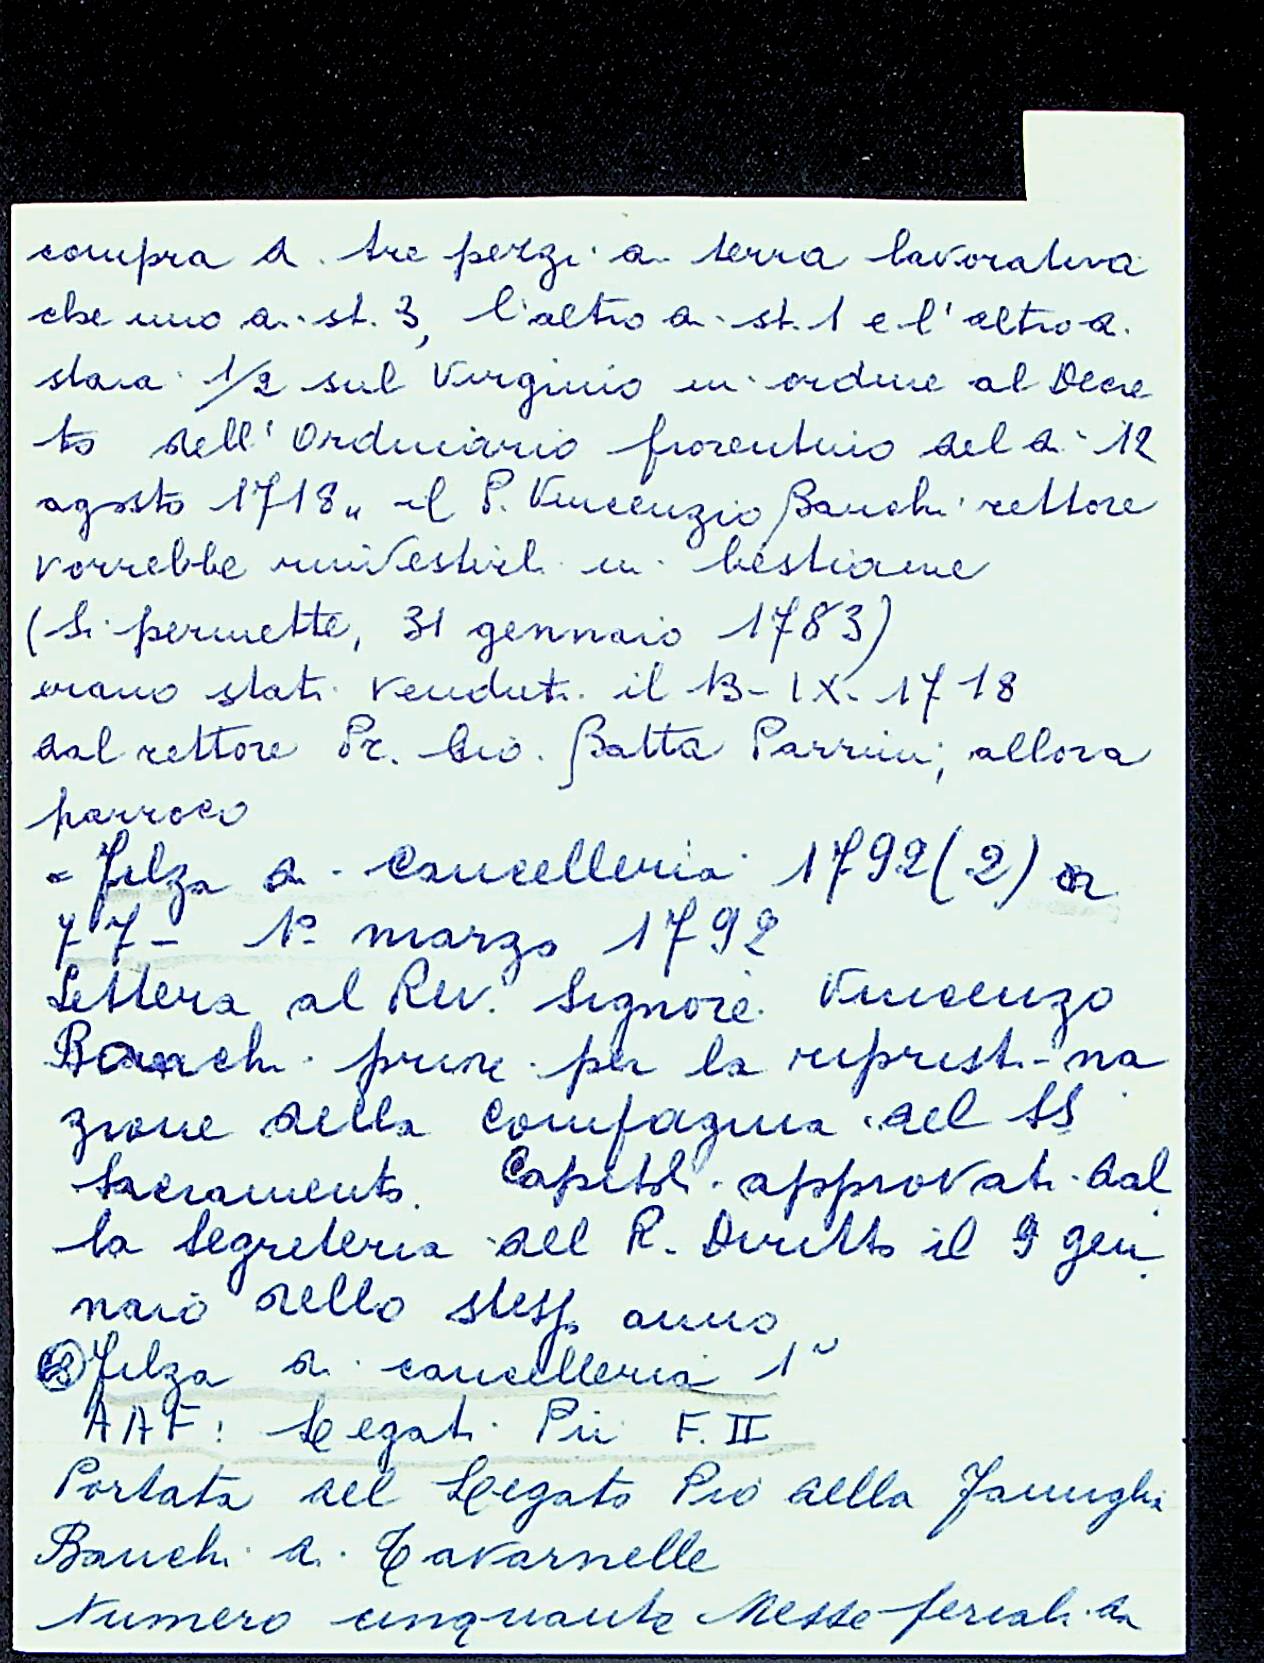 compra di tre pezzi di terra lavorativa
che uno di st. 3, l'altro di st. 1 e l'altro di
staia 1/2 sul Virginio in ordine al Decre
to dell'Ordinario fiorentino del dì 12
agosto 1718„ il P. Vincenzio Banchi rettore
vorrebbe rinvestirli in bestiame
(Si permette, 31 gennaio 1783)
erano stati venduti il 13-IX-1718
dal rettore Pr. Gio. Batta Parrini, allora
parroco
= Filza di Cancelleria 1792 (2)
77- 1° marzo 1792
Lettera al Rev. Signore Vincenzo
Banchi priore per la ripristi-na
zione della Compagnia del SS
Sacramento. Capitoli approvati dal
la Segreteria del R. Diritto il 9 gen
naio dello stesso anno
Filza di cancelleria 1°
AAF: Legati Pii F. II
Portata del Legato Pio della Famiglia
Banchi di Tavarnelle
Numero cinquanta Messe feriali da